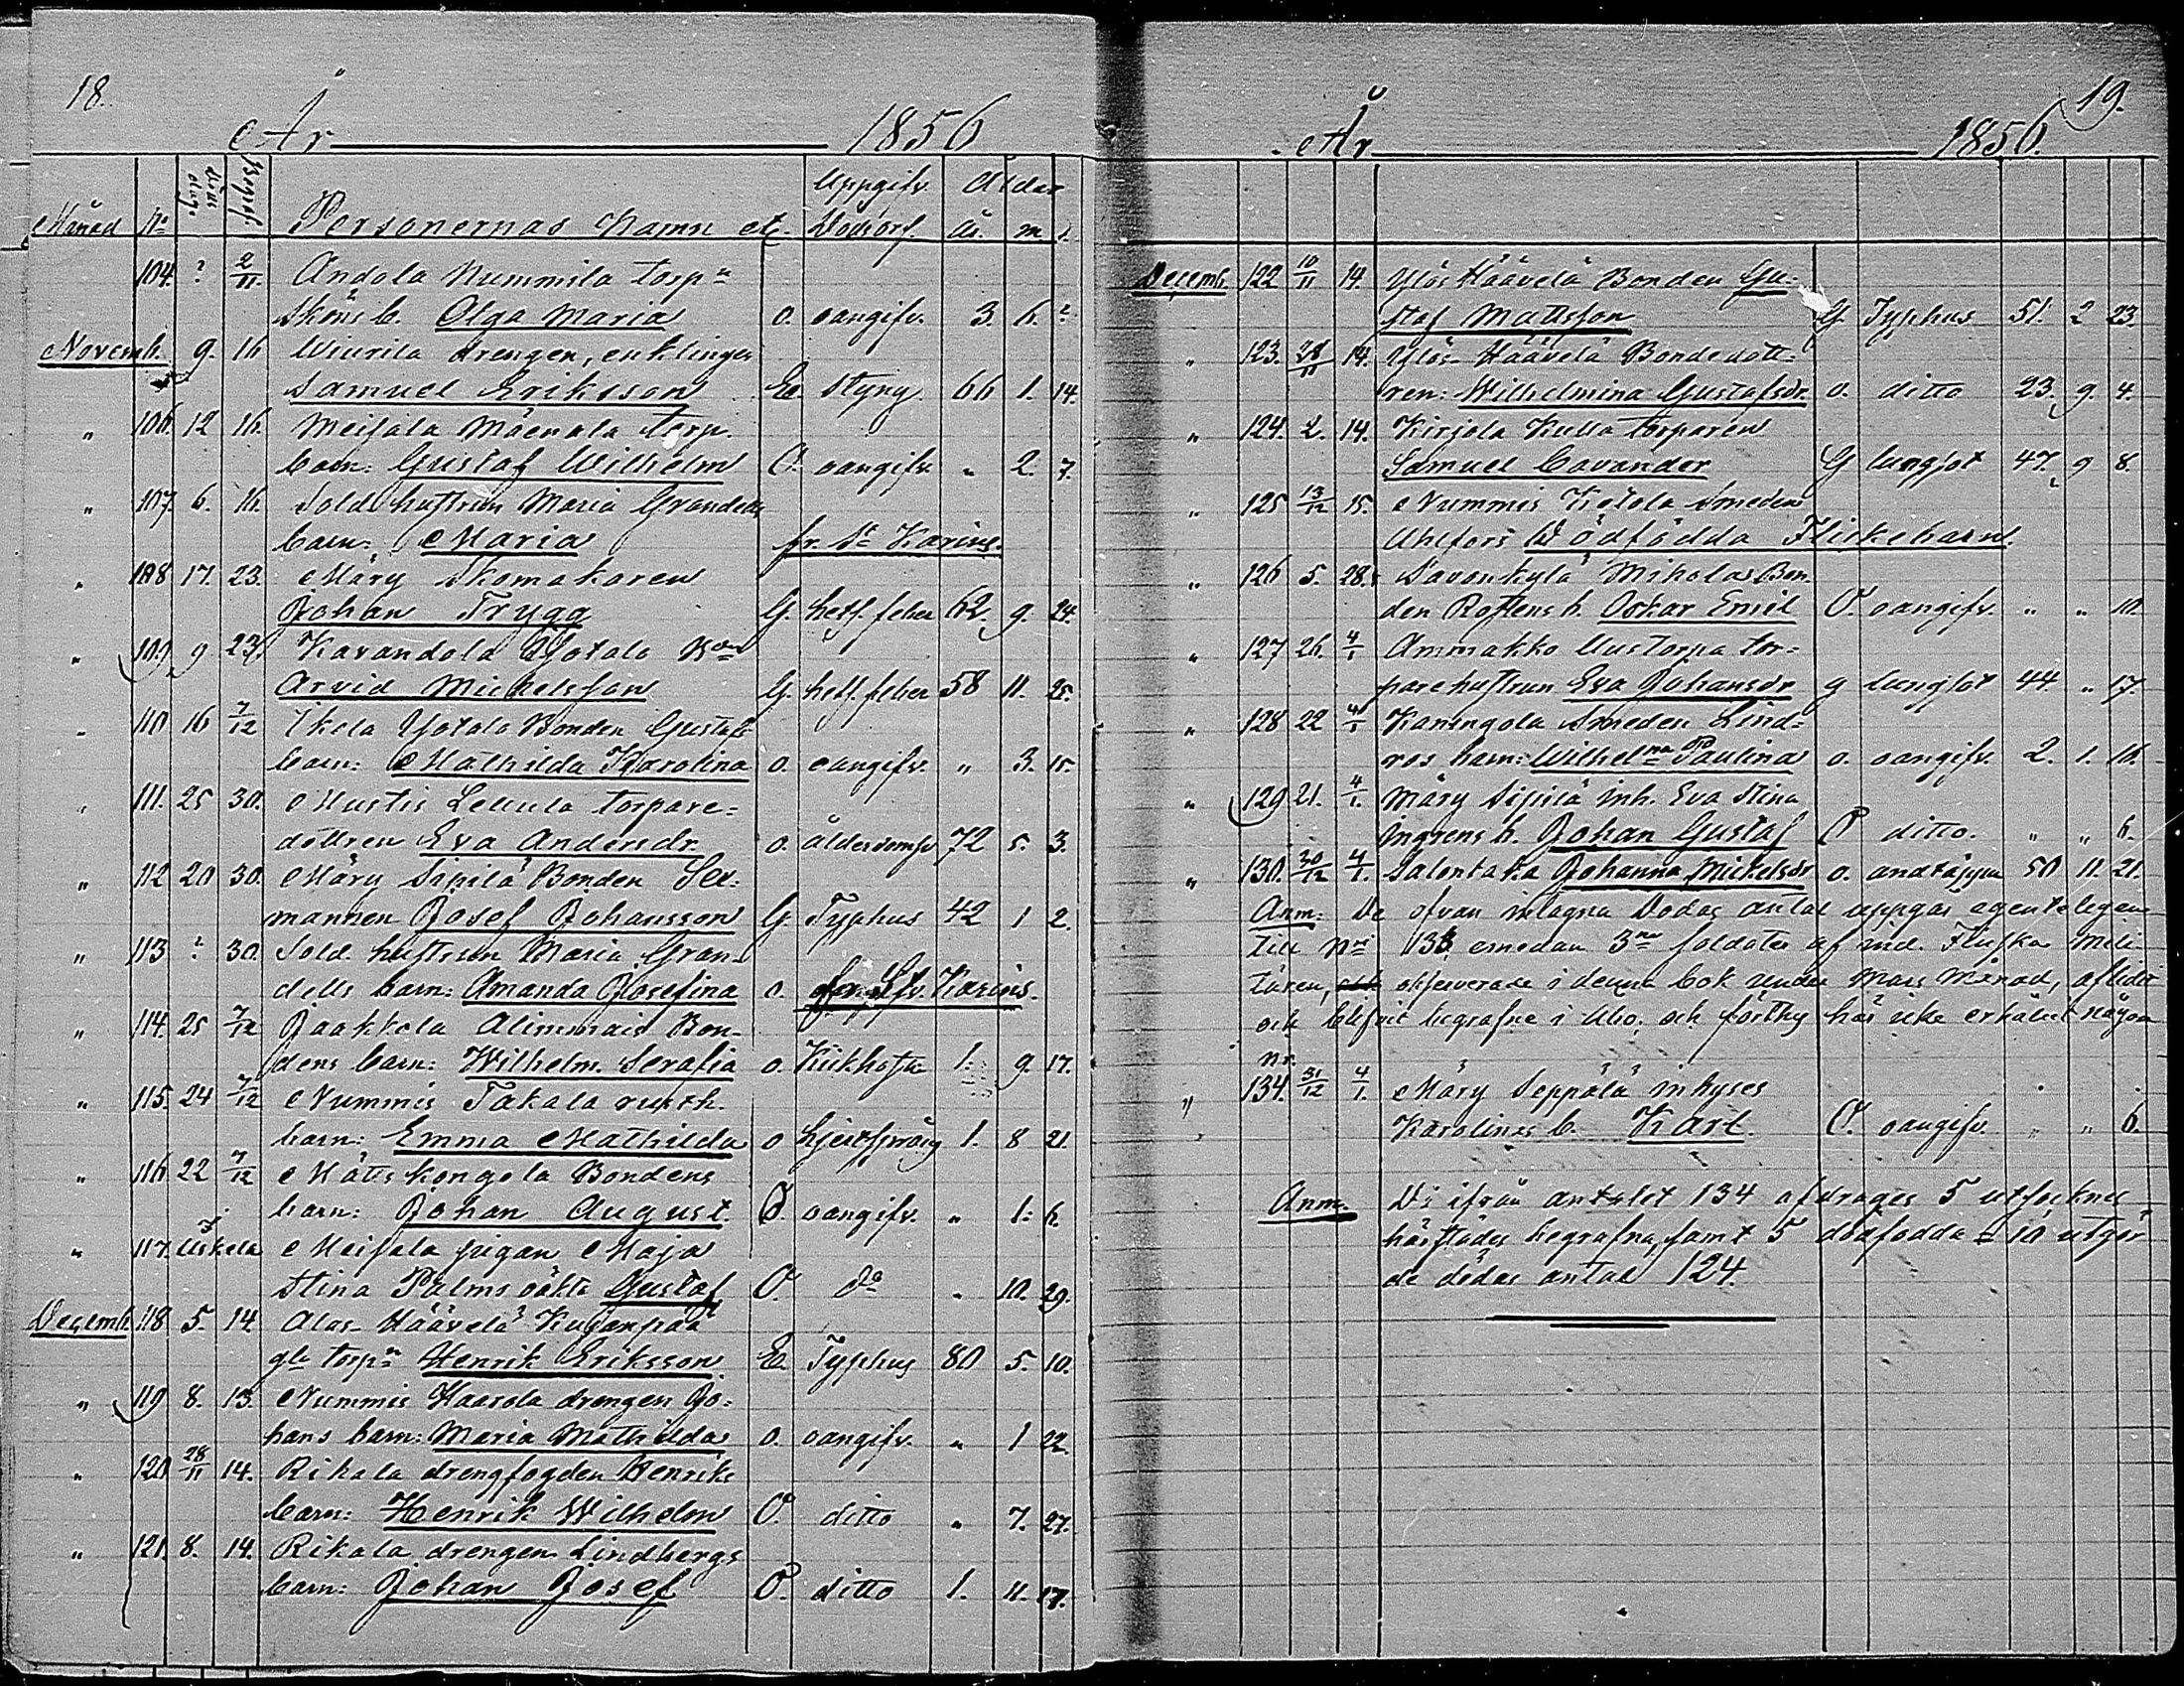 18.
År 1856
Månad No döds dag. Begrafn. Personernas Namn etc. Uppgifv. Dödsors. Ålder år. m. d.
104. ? 2/11. Andola Nummila torp n
Sköns b. Olga Maria o. oangifv. 3. 6. ?
Novemb. 9. 16 Wiurila drengen, enklingen
Samuel Eriksson E. styng 66 1. 14.
" 106. 12 16. Meisala Mäenala torp.
barn: Gustaf Wilhelm O. oangifv. " 2. 7.
" 107. 6. 16. Sold. hustrun Maria Grandells
barn: Maria fr. St Karins.
" 108 17. 23. Märy Skomakaren
Johan Trygg G. hets. feber 62. 9. 24.
" 109 9 23. Karandola Yotalo
Arvid Michelsson G. hets. feber 58 11. 25.
" 110 16 7/12 Ikela Yotalo Bonden Gustafs
barn: Mathilda Karolina o. oangifv. " 3. 15.
" 111. 25 30. Mustis Leuula torpare-
dottren Eva Andersdr. o. ålderdomsv 72 5. 3.
" 112 20 30. Märy Sipilä Bonden Sex-
mannen Josef Johansson G. Typhus 42 1 2.
" 113 ? 30. Sold. hustrun Maria Gran-
dells barn: Amanda Josefina o. Karins.
" 114. 25 7/12 Jaakkola Alimmais Bon-
dens barn: Wilhelm. Serafia o. Kikhosta 1. 9. 17.
" 115. 24 7/12 Nummis Takala rusth.
barn: Emma Mathilda o 1. 8 21.
" 116 22 7/12 Mätiskongola Bondens
barn: Johan August. O. oangifv. " 1. 6.
" 117. i Uskela Meisala pigan Maja
Stina Palms oäkta Gustaf O. do " 10. 29.
Decemb. 118 5. 14. Alas-Häävelä Kujanpää
gla torp n Henrik Eriksson E. Typhus 80 5. 10.
" 119 8. 13. Nummis Haarola drengen Jo-
hans barn: Maria Mathilda o. oangifv. " 1 22.
" 120 28/11 14. Rikala drengfogden Henriks
barn: Henrik Wilhelm O. ditto " 7. 27.
" 121. 8. 14. Rikala drengen Lindbergs
barn: Johan Josef O. ditto 1. 11. 17.
19.
År 1856.
Decemb. 122 10/11 14. Ylös Häävelä Bonden Gu-
staf Mattsson G. Typhus 51. 2 23.
" 123. 28/11 14. Ylös-Häävelä Bondedott-
ren: Wilhelmina Gustafsdr. o. ditto 23. 9. 4.
" 124. 2. 14. Kirjola Kulla torparen
Samuel Cavander G lungsot 47. 9 8.
" 125 13/12 15. Nummis Ketola Smeden
Ahlfors Dödfödda Flickebarn.
" 126 5. 28. Savonkylä Mikola Bon-
den b. Oskar Emil O. oangifv. " " 10.
" 127 26. 4/1 Ammakko Uustorpa tor-
pare hustrun Eva Johansdr g lungsot 44. " 17.
" 128 22 4/1 Kaningola Smeden Lind-
ros barn: Wilhelmna Paulina o. oangifv. 2. 1. 10.
" 129 21. 4/1. Märy Sipilä inh. Eva Stina
b. Johan Gustaf O ditto. " " 6.
" 130. 30/12 4/1. Salontaka Johanna Mickelsdr o. andtäppa 50 11. 21.
Anm: De ofvan intagna Dödas antal uppgår egenteligen
till Nri 133, emedan 3ne soldater af ind. Finska Mili-
tären, observerade i denna bok under Mars Månad, aflidit
och blifvit begrafne i Åbo, och förthy här icke erhållit någon
nr.
" 134. 31/12 4/1. Märy Seppälä inhyses
Karolinas b. Karl. O. oangifv. " " 6.
Anm. Då ifrån antalet 134 afdrages 5 utsocknes
härstädes begrafna, samt 5 dödfödda = 10 utgör
de dödas antal 124.